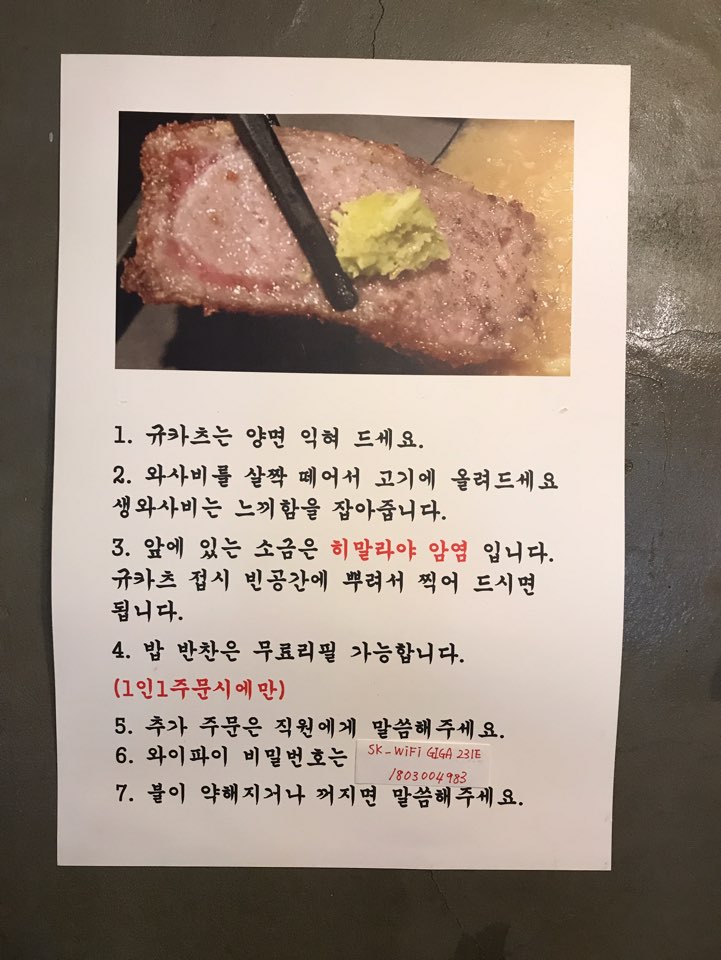 1. 규카츠는 양면 익혀 드세요.
2. 와사비를 살짝 떼어서 고기에 올려드세요
생와사비는 느끼함을 잡아줍니다.
3. 앞에 있는 소금은 히말라야 암염 입니다.
규카츠 접시 빈공간에 뿌려서 찍어 드시면
됩니다.
4. 밥 반찬은 무료리필 가능합니다.
(1인1주문시에만)
5. 추가 주문은 직원에게 말씀해주세요.
6. 와이파이 비밀번호는 SK-WiFi GIGA 231E
1803004983
7. 불이 약해지거나 꺼지면 말씀해주세요.